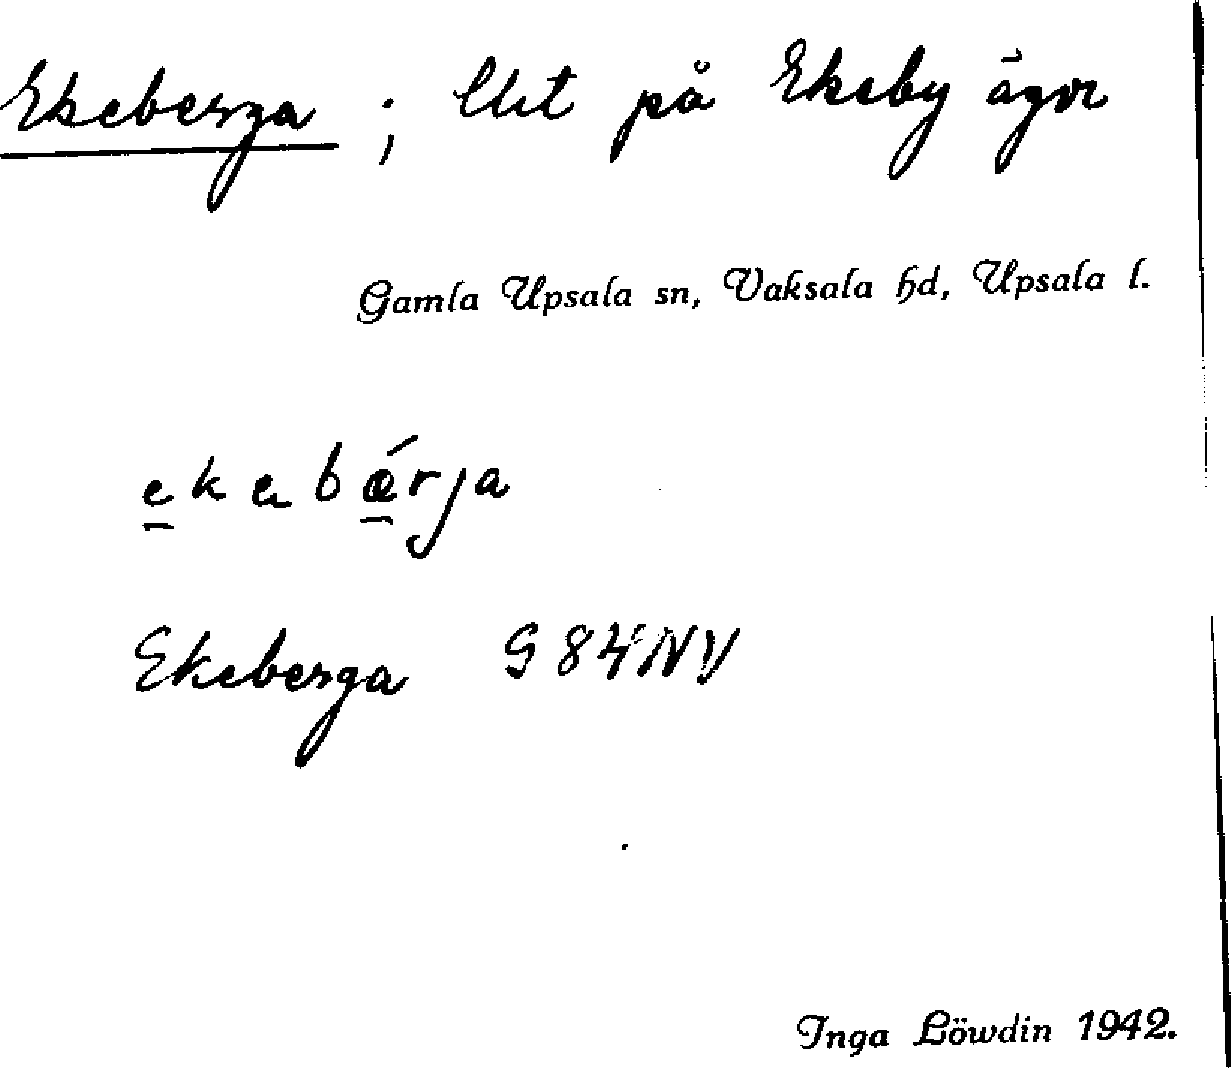 Ekeberga ; lht på Ekeby ägor
Gamla Upsala sn, Vaksala hd, Upsala l.
ekabǽrja
Ekeberga G 84 NV
Inga Löwdin 1942.